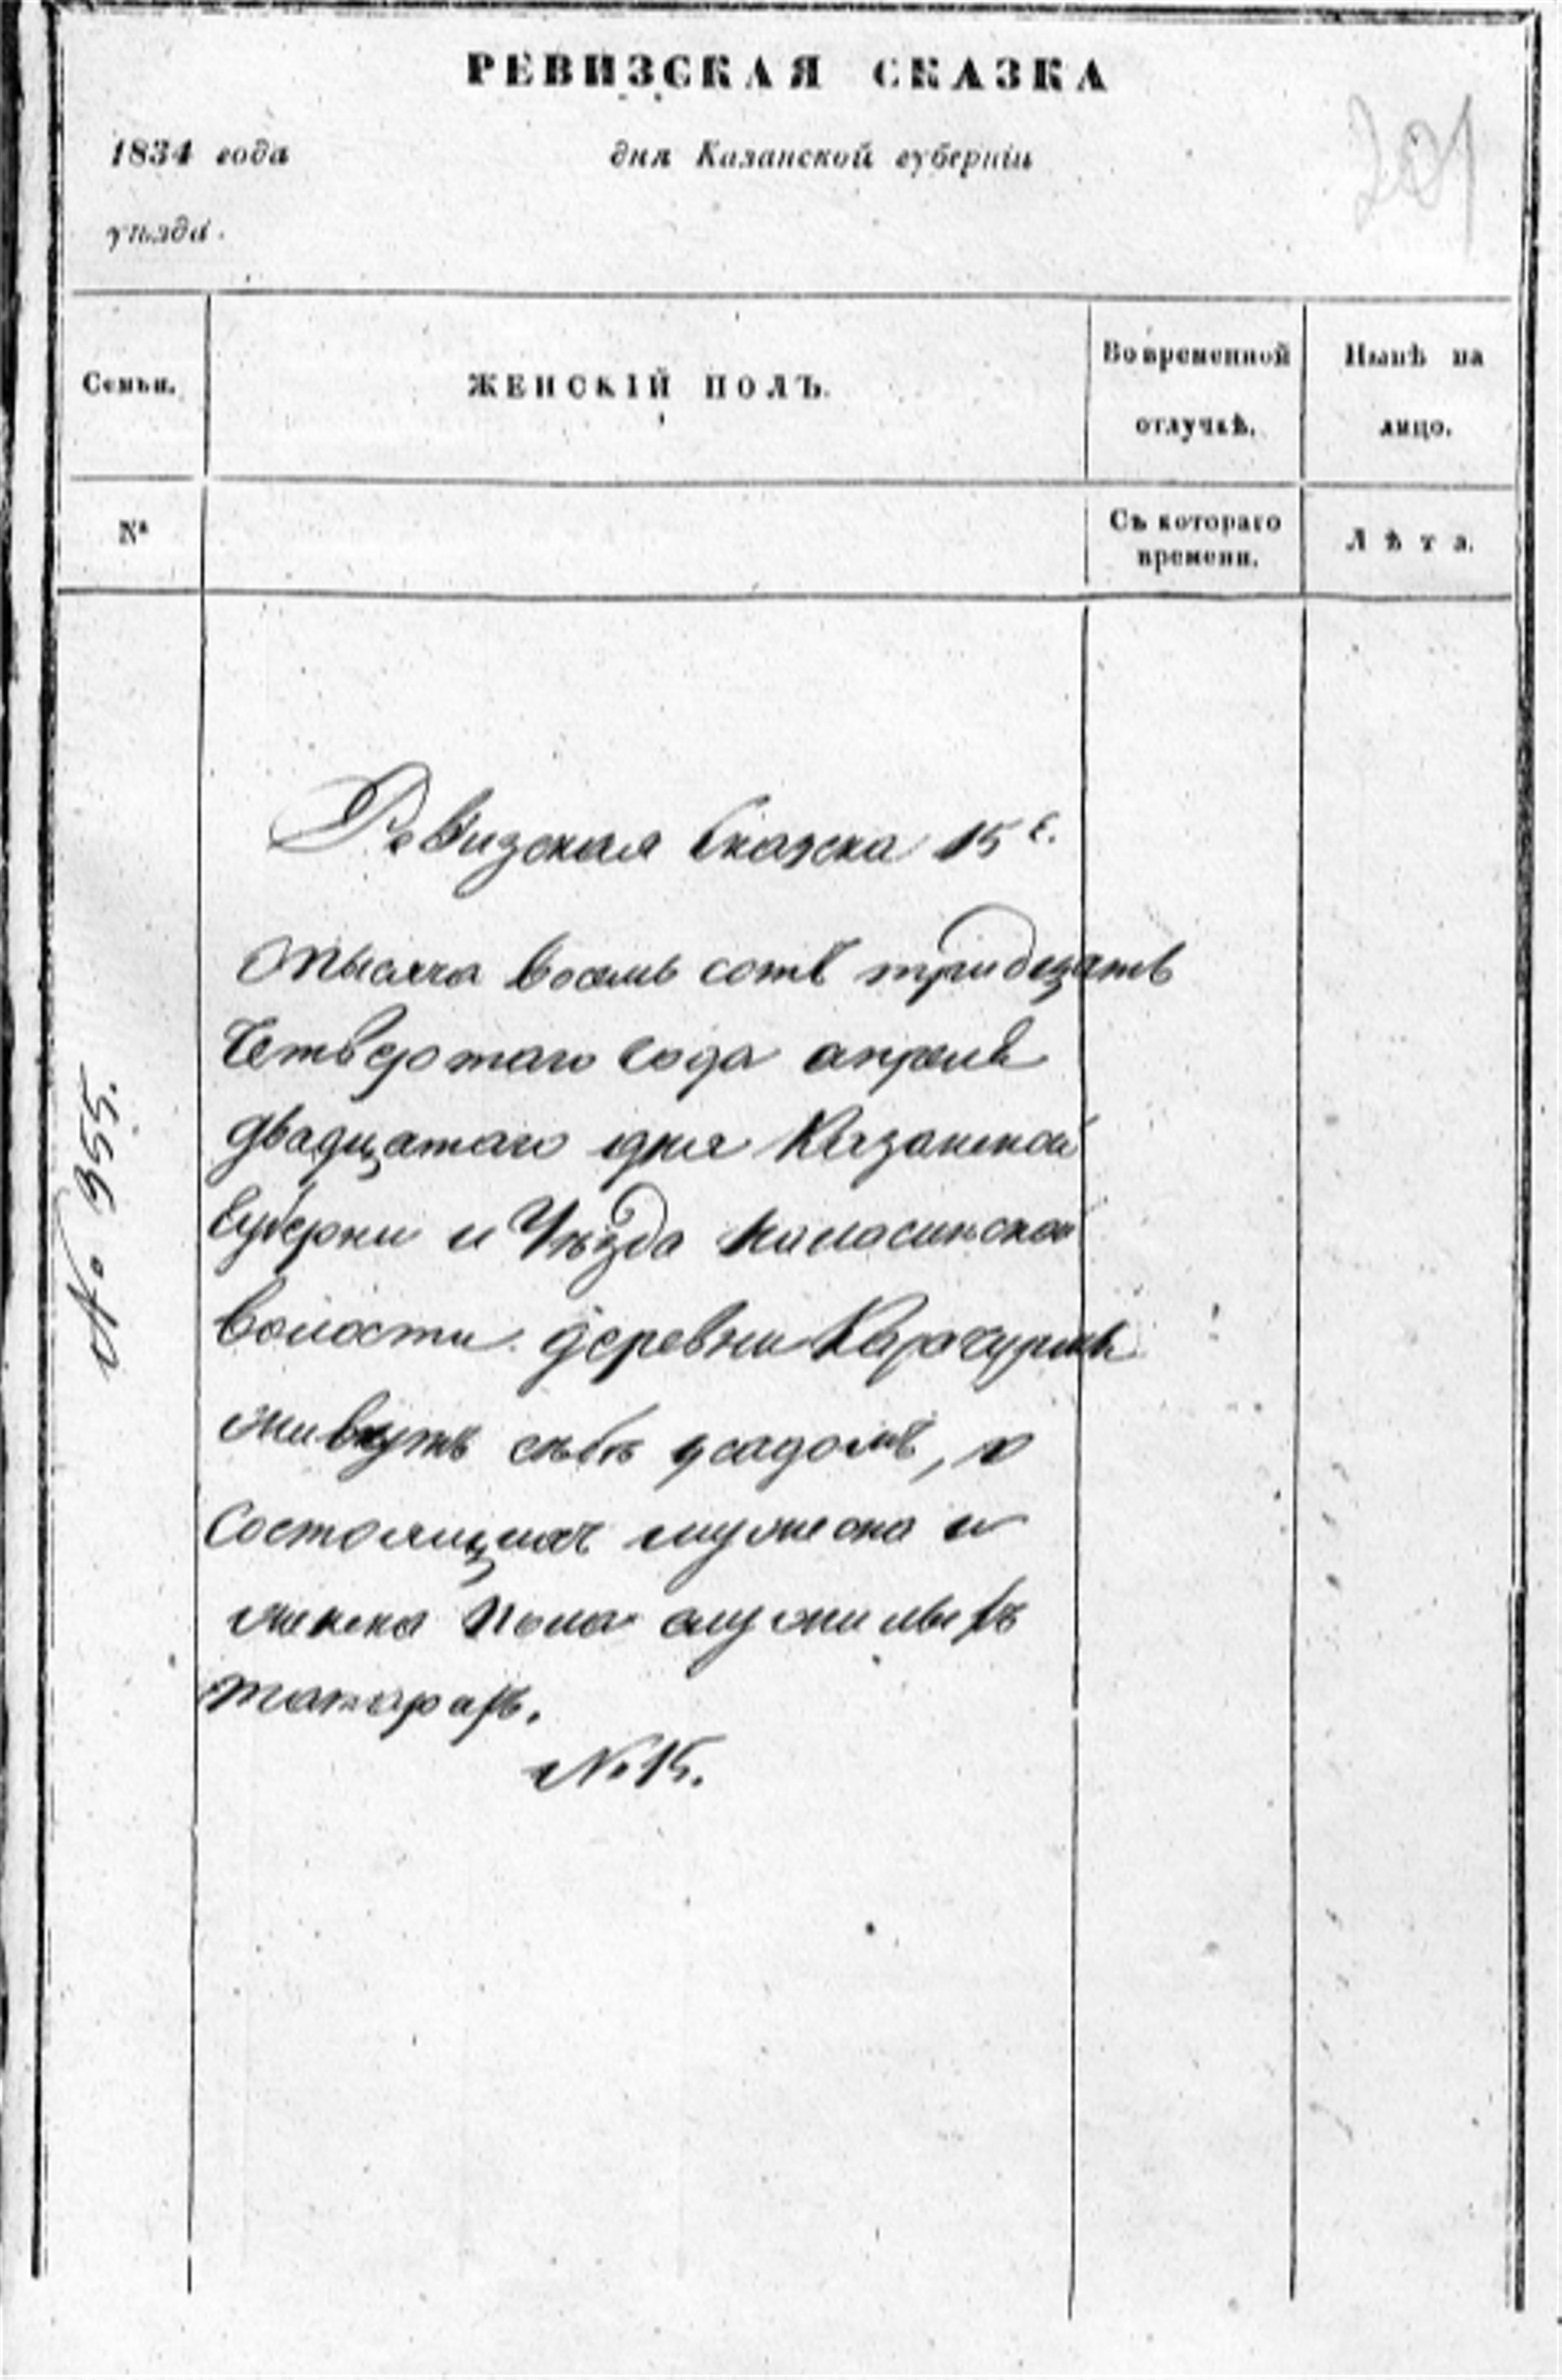 РЕВИЗСКАЯ СКАЗКА
1834 года дня Казанской губерніи
201
уѣзда.
Семьи. ЖЕНСКІЙ ПОЛЪ. Во временной отлучкѣ. Нынѣ на лицо.
№ Съ котораго времени. Лѣта.
Ревизская Сказка 15 е.
тысяча восемь сотъ тридцать
Четвертаго года апреля
двадцатаго дня Казанской
Губерни и Уѣзда
волости деревни
усадомъ, о
Состоящихъ мужеска и
женска пола служилыхъ
татарахъ.
№ 15.
№ 955.